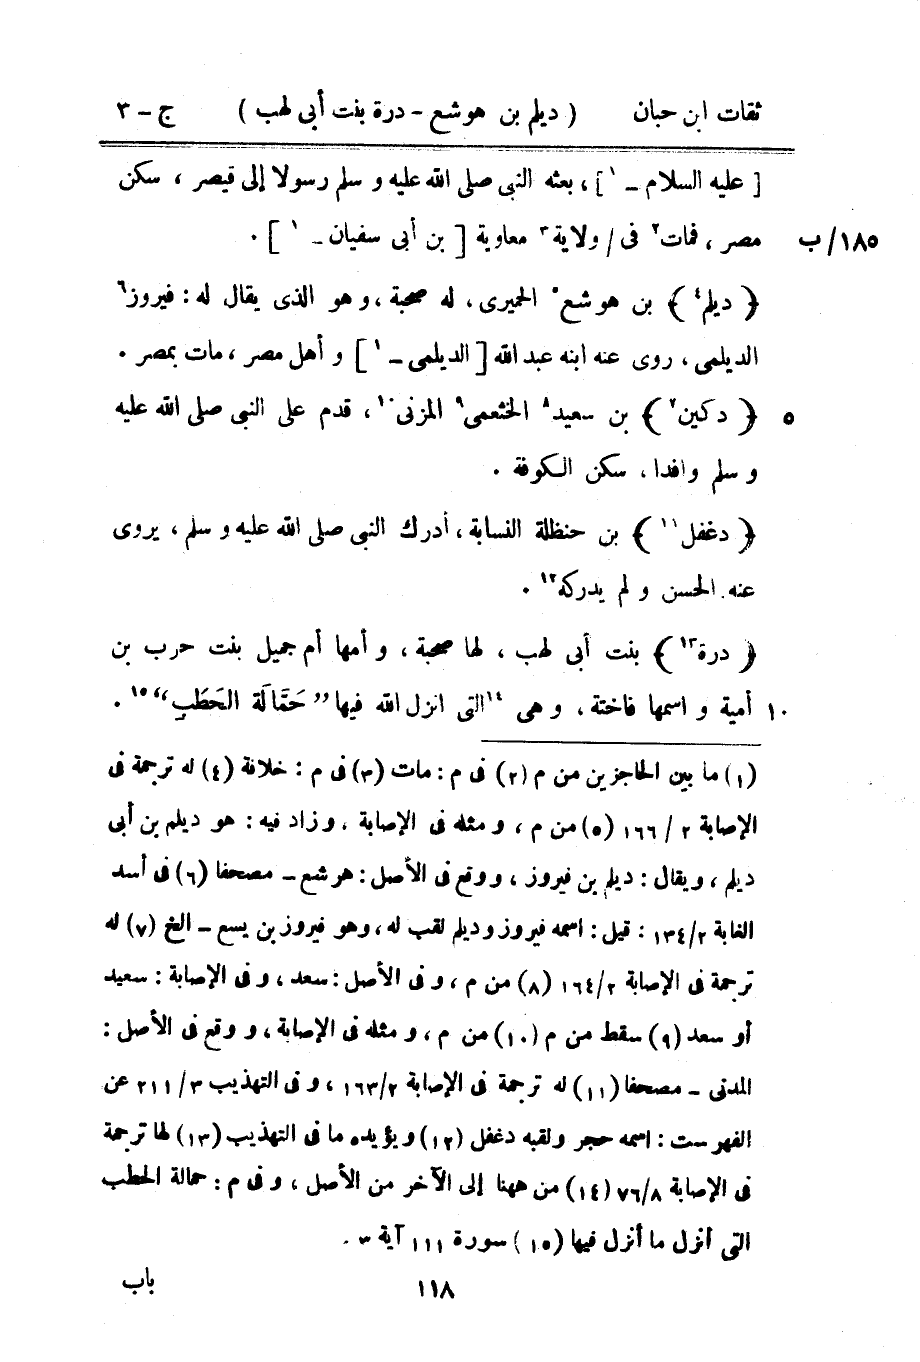 ثقات ابن حبان ( ديلم بن هوشع - درة بنت أبى لهب ) ج - ٣
[ عليه السلام - ١ ] ، بعثه النبى صلى الله عليه و سلم رسولا إلى قيصر ، سكن
١٨٥/ب مصر ، فمات٢ فى / ولاية٣ معاوية [ بن أبى سفيان - ١ ] .
﴿ ديلم٤ ﴾ بن هوشع٥ الحميرى ، له صحبة ، و هو الذى يقال له : فيروز٦
الديلمى ، روى عنه ابنه عبد الله [ الديلمى - ١ ] و أهل مصر ، مات بمصر .
٥ ﴿ دكين٧ ﴾ بن سعيد٨ الخثعمى٩ المزنى١٠ ، قدم على النبى صلى الله عليه
و سلم وافدا ، سكن الكوفة .
﴿ دغفل١١ ﴾ بن حنظلة النسابة ، أدرك النبى صلى الله عليه و سلم ، يروى
عنه الحسن و لم يدركه١٢ .
﴿ درة١٣ ﴾ بنت أبى لهب ، لها صحبة ، و أمها أم جميل بنت حرب بن
١٠ أمية و اسمها فاختة ، و هى ١٤التى انزل الله فيها “ حَمَّالَةَ الحَطَبِ ”١٥ .
(١) ما بين الحاجزين من م (٢) فى م : مات (٣) فى م : خلافة (٤) له ترجمة فى
الإصابة ٢ / ١٦٦ (٥) من م ، و مثله فى الإصابة ، و زاد فيه : هو ديلم بن أبى
ديلم ، ويقال : ديلم بن فيروز ، ووقع فى الأصل : هرشع - مصحفا (٦) فى أسد
الغابة ١٣٤/٢ : قيل : اسمه فيروز و ديلم لقب له ، وهو فيروز بن يسع - الخ (٧) له
ترجمة فى الإصابة ١٦٤/٢ (٨) من م ، و فى الأصل : سعد ، و فى الإصابة : سعيد
أو سعد (٩) سقط من م (١٠) من م ، و مثله فى الإصابة ، و وقع فى الأصل :
المدنى - مصحفا (١١) له ترجمة فى الإصابة ١٦٣/٢ ، و فى التهذيب ٢١١/٣ عن
الفهرست : اسمه حجر ولقبه دغفل (١٢) و يؤيده ما فى التهذيب (١٣) لها ترجمة
فى الإصابة ٧٦/٨ (١٤) من ههنا إلى الآخر من الأصل ، و فى م : حمالة الحطب
التى أنزل ما أنزل فيها (١٥) سورة ١١١ آية ٣ .
١١٨ باب